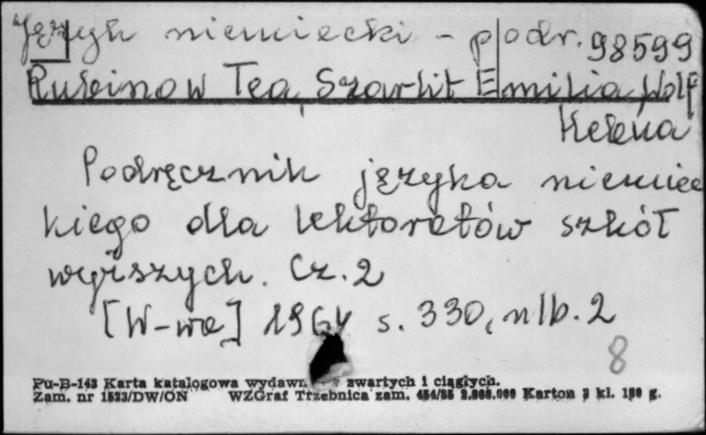 Język niemiecki - podr. 98599
Rubinow Tea, Szarlit Emilia, Wolf
Helena
Podręcznik języka niemiec
kiego dla lektoratów szkół
wyższych. Cz. 2
[W-wa] 1964 s. 330, nlb. 2
8
Pu-B-143 Karta katalogowa wydawn. zwartych i ciągłych.
Zam. nr 1523/DW/ON WZGraf Trzebnica zam. 454/85 2.000.000 Karton 3 kl. 180 g.